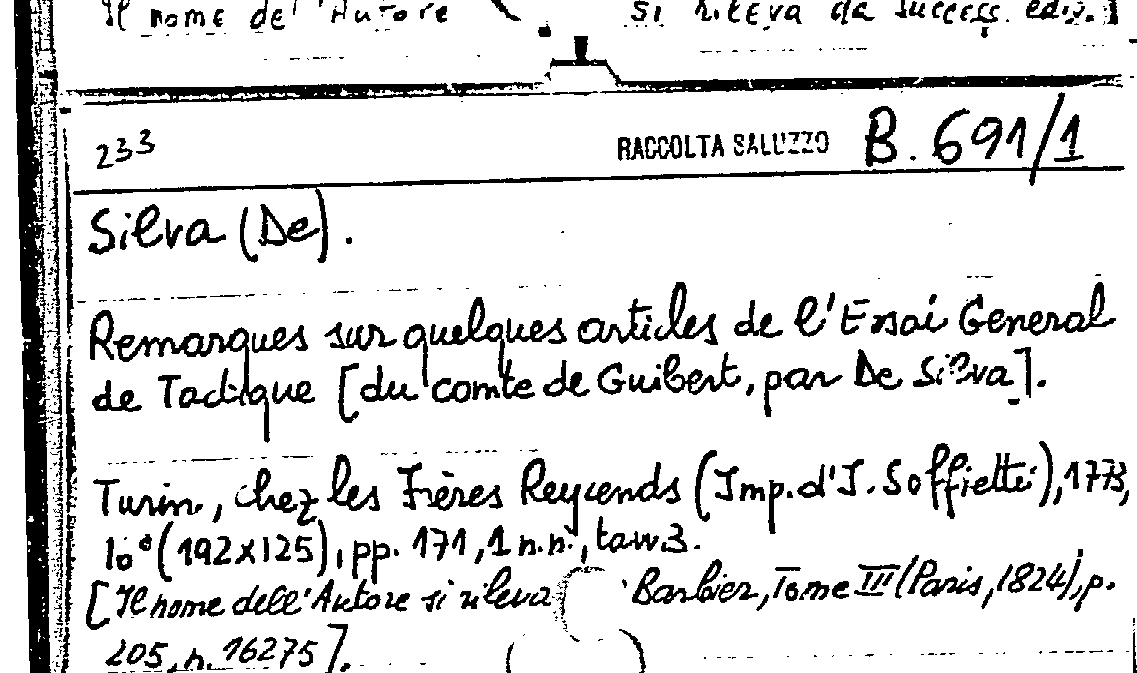 Il nome del' Autore si rileva da success. ediz.]
233 RACCOLTA SALUZZO B. 691/1
Silva (De).
Remarques sur quelques articles de l'Essai General
de Tactique [du comte de Guibert, par De Silva].
Turin, chez les Frères Reycends (Imp. d'I. Soffietti), 1773,
16° (192x125), pp. 171, 1 n.n., tavv 3.
[Il nome dell'Autore si rileva Barbier, Tome III (Paris, 1824), p.
205, n. 16275].